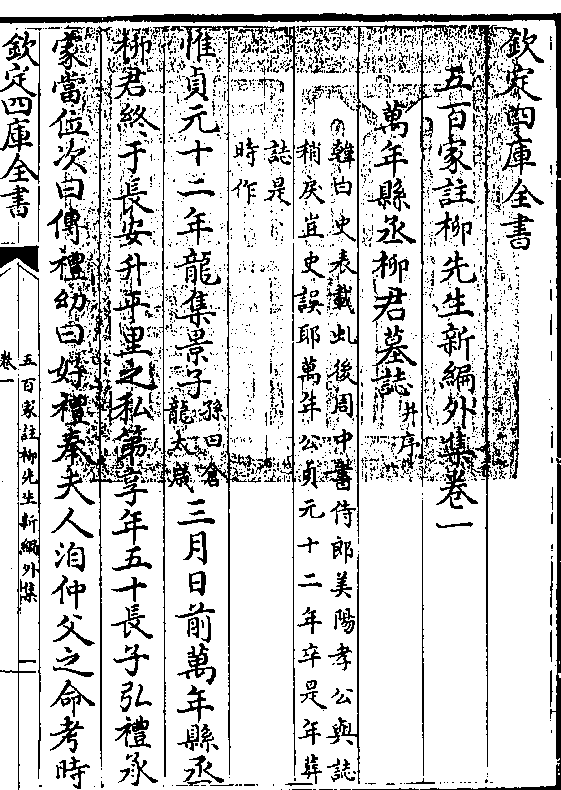 欽定四庫全書
五百家註柳先生新編外集卷一
萬年縣丞柳君墓誌并序
韓曰史表載虬後周中書侍郎美陽孝公與誌
稍戾豈史誤耶萬年公貞元十二年卒是年葬
誌是
時作
惟貞元十二年龍集景子
孫曰倉
龍太歲
三月日前萬年縣丞
柳君終于長安升平里之私第享年五十長子弘禮承
家當位次曰傳禮幼曰好禮奉夫人洎仲父之命考時
欽定四庫全書
五百家註柳先生新編外集
卷一
一